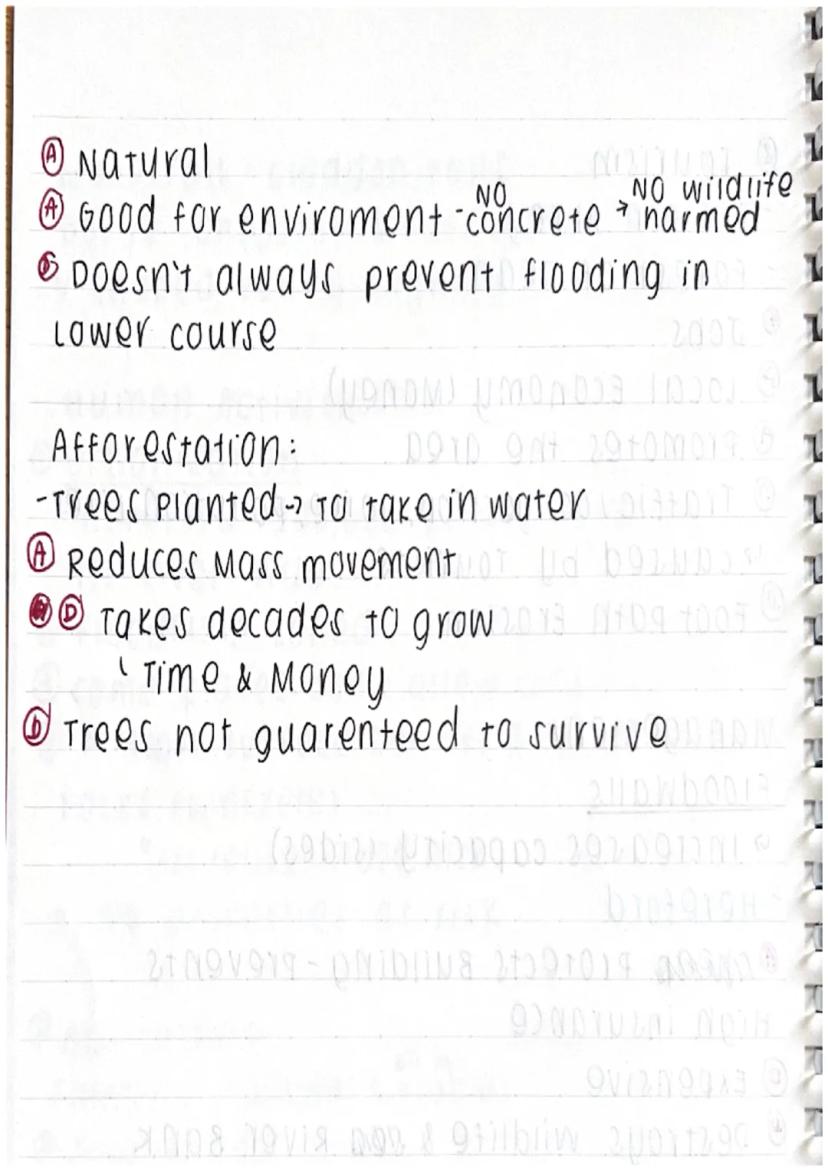 Ⓐ Natural
Ⓐ Good for enviroment - NO concrete → NO wildlife harmed
Ⓓ Doesn't always prevent flooding in
Lower course
Afforestation:
- Trees Planted → To take in water
Ⓐ Reduces Mass movement
Ⓓ Takes decades to grow
↳ Time & Money
Ⓓ Trees not guarenteed to survive